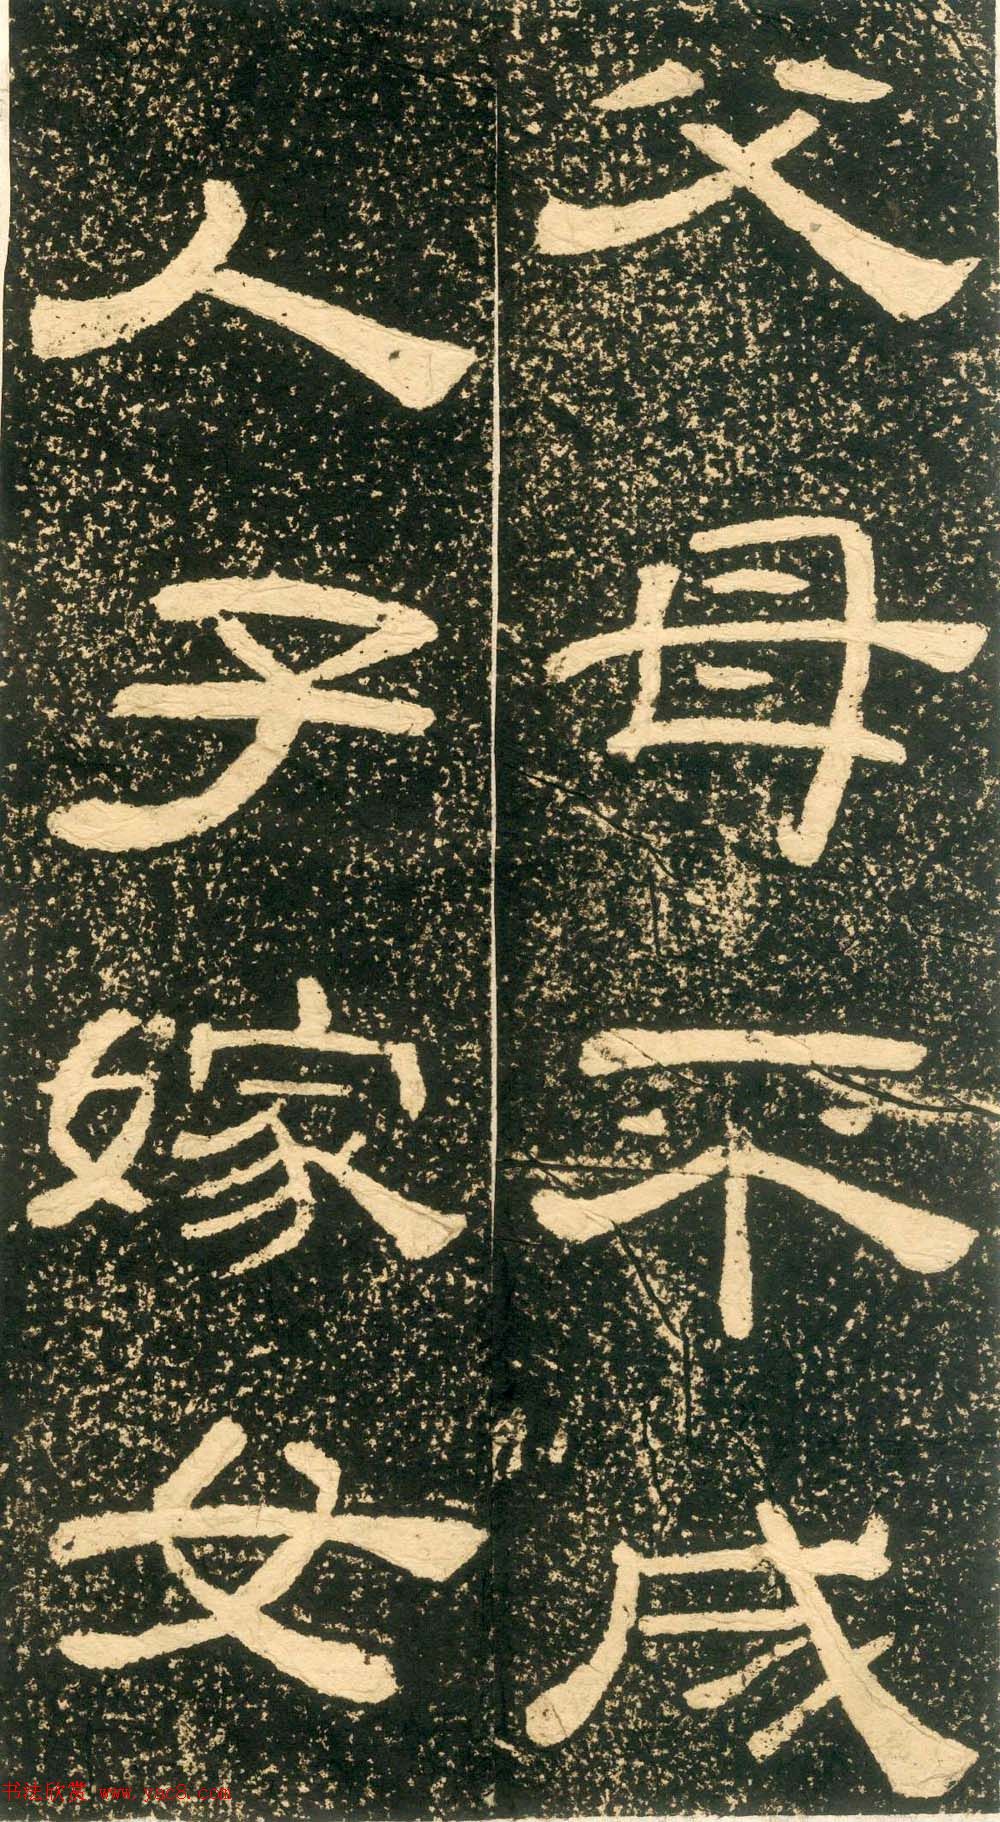 父母不戍
人子嫁女
书法欣赏 www.yac8.com